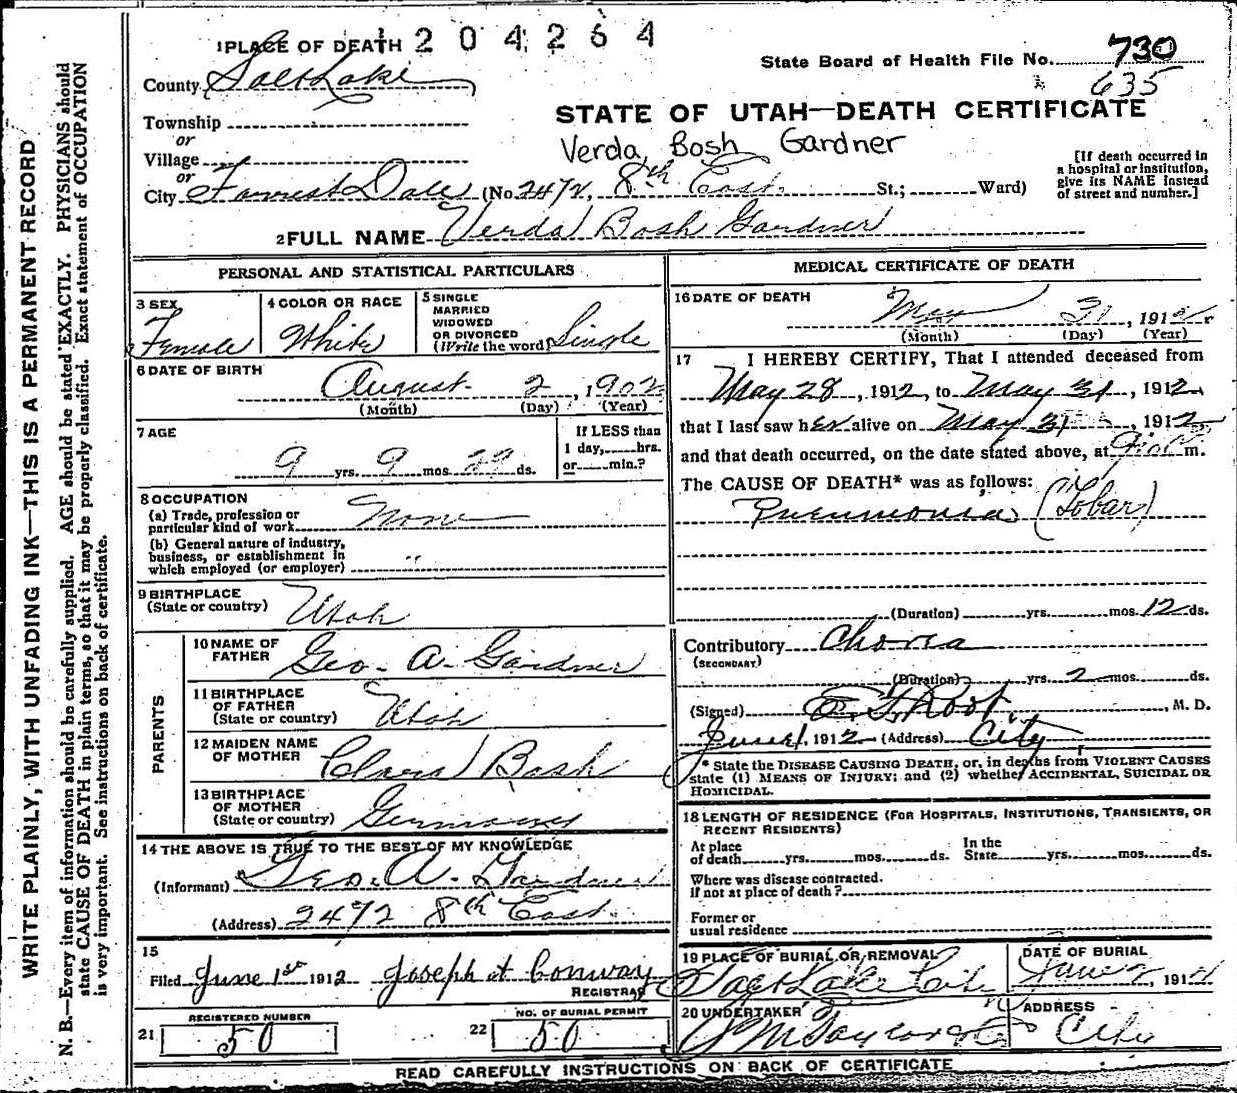 WRITE PLAINLY, WITH UNFADING INK—THIS IS A PERMANENT RECORD
N. B.—Every item of information should be carefully supplied. AGE should be stated EXACTLY. PHYSICIANS should
state CAUSE OF DEATH in plain terms, so that it may be properly classified. Exact statement of OCCUPATION
is very important. See instructions on back of certificate.
1 PLACE OF DEATH 204264
State Board of Health File No. 730
635
County Salt Lake
STATE OF UTAH—DEATH CERTIFICATE
Township
or
Verda Bosh Gardner
Village
or
[If death occurred in
a hospital or institution,
give its NAME instead
of street and number.]
City Forrest Dale (No 2472, 8th East St.; Ward)
2 FULL NAME Verda Bosh Gardner
PERSONAL AND STATISTICAL PARTICULARS
3 SEX
Female
4 COLOR OR RACE
White
5 SINGLE
MARRIED
WIDOWED
OR DIVORCED
(Write the word) Single
6 DATE OF BIRTH
August 2, 1902
(Month) (Day) (Year)
7 AGE
9 yrs. 9 mos. 29 ds.
If LESS than
1 day, hrs.
or min.?
8 OCCUPATION
(a) Trade, profession or
particular kind of work None
(b) General nature of industry,
business, or establishment in
which employed (or employer) "
9 BIRTHPLACE
(State or country) Utah
PARENTS
10 NAME OF
FATHER Geo. A. Gardner
11 BIRTHPLACE
OF FATHER
(State or country) Utah
12 MAIDEN NAME
OF MOTHER Clara Bosh
13 BIRTHPLACE
OF MOTHER
(State or country) Germany
14 THE ABOVE IS TRUE TO THE BEST OF MY KNOWLEDGE
(Informant) Geo. A. Gardner
(Address) 2472 8th East
15
Filed June 1st 1912 Joseph H Conway
REGISTRAR
21 REGISTERED NUMBER
50
22 NO. OF BURIAL PERMIT
50
MEDICAL CERTIFICATE OF DEATH
16 DATE OF DEATH
May 31, 1912
(Month) (Day) (Year)
17 I HEREBY CERTIFY, That I attended deceased from
May 28, 1912, to May 31, 1912
that I last saw her alive on May 31, 1912
and that death occurred, on the date stated above, at m.
The CAUSE OF DEATH* was as follows:
Pneumonia (Lobar)
(Duration) yrs. mos. 12 ds.
Contributory Chorea
(SECONDARY)
(Duration) yrs. 2 mos. ds.
(Signed) Root, M. D.
June 1, 1912 (Address) City
* State the DISEASE CAUSING DEATH, or, in deaths from VIOLENT CAUSES
state (1) MEANS OF INJURY; and (2) whether ACCIDENTAL, SUICIDAL OR
HOMICIDAL.
18 LENGTH OF RESIDENCE (FOR HOSPITALS, INSTITUTIONS, TRANSIENTS, OR
RECENT RESIDENTS)
At place
of death yrs. mos. ds.
In the
State yrs. mos. ds.
Where was disease contracted.
if not at place of death?
Former or
usual residence
19 PLACE OF BURIAL OR REMOVAL
Salt Lake City
DATE OF BURIAL
June 2, 1912
20 UNDERTAKER
ADDRESS
City
READ CAREFULLY INSTRUCTIONS ON BACK OF CERTIFICATE